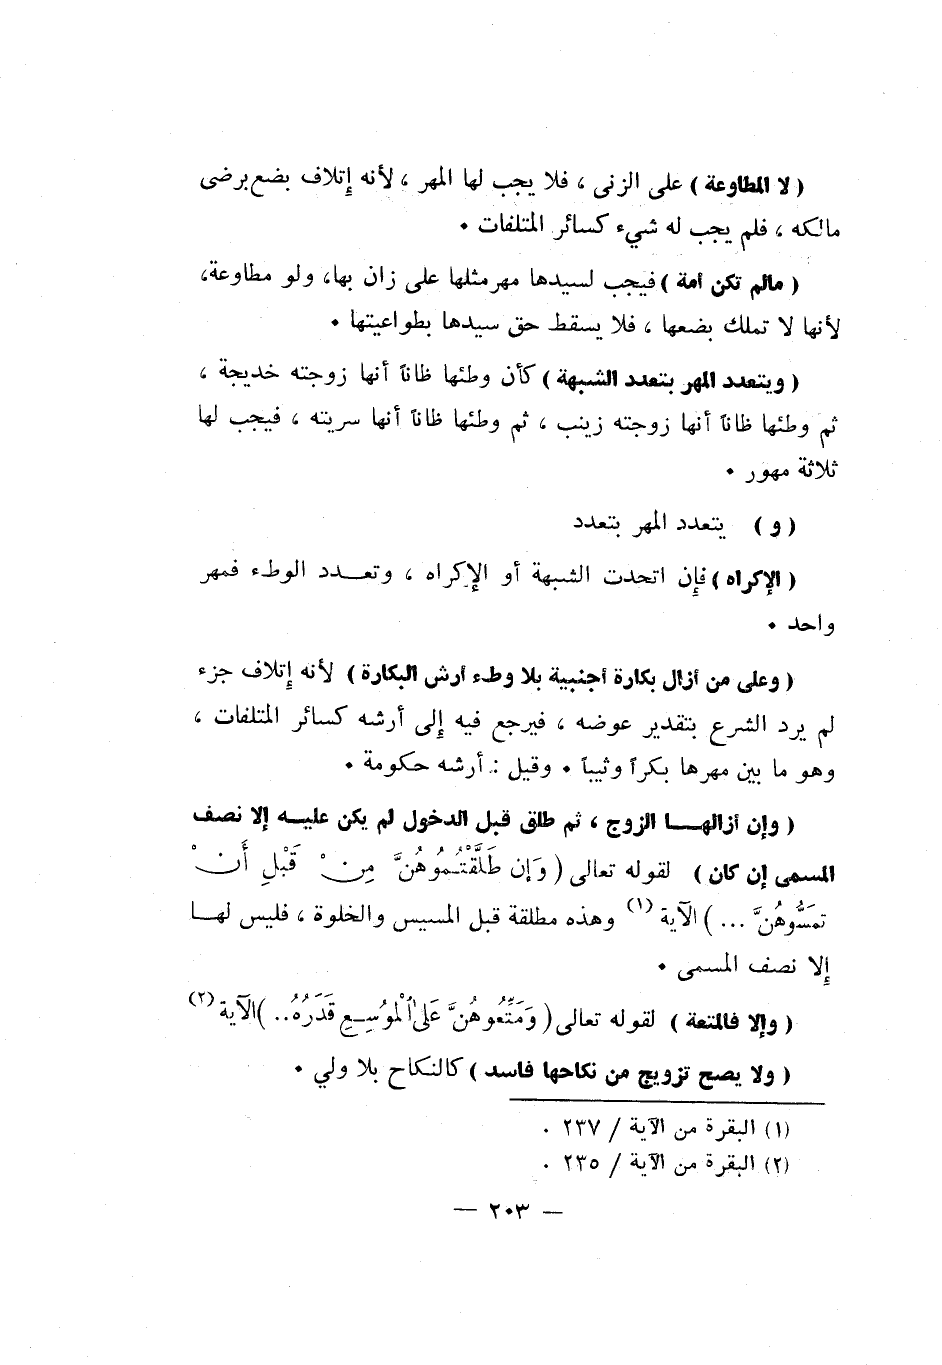 ( لا المطاوعة ) على الزنى ، فلا يجب لها المهر ، لأنه إتلاف بضع برضى
مالكه ، فلم يجب له شيء كسائر المتلفات .
( مالم تكن أمة ) فيجب لسيدها مهر مثلها على زان بها، ولو مطاوعة،
لأنها لا تملك بضعها ، فلا يسقط حق سيدها بطواعيتها .
( ويتعدد المهر بتعدد الشبهة ) كأن وطئها ظاناً أنها زوجته خديجة ،
ثم وطئها ظاناً أنها زوجته زينب ، ثم وطئها ظاناً أنها سريته ، فيجب لها
ثلاثة مهور .
( و ) يتعدد المهر بتعدد
( الإكراه ) فإن اتحدت الشبهة أو الإكراه ، وتعـــدد الوطء فمهر
واحد .
( وعلى من أزال بكارة أجنبية بلا وطء أرش البكارة ) لأنه إتلاف جزء
لم يرد الشرع بتقدير عوضه ، فيرجع فيه إلى أرشه كسائر المتلفات ،
وهو ما بين مهرها بكراً وثيباً . وقيل : أرشه حكومة .
( وإن أزالهـــا الزوج ، ثم طلق قبل الدخول لم يكن عليـــه إلا نصف
المسمى إن كان ) لقوله تعالى ( وَإِن طَلَّقْتُمُوهُنَّ مِنْ قَبْلِ أَنْ
تَمَسُّوهُنَّ ... ) الآية (١) وهذه مطلقة قبل المسيس والخلوة ، فليس لهــا
إلا نصف المسمى .
( وإلا فالمتعة ) لقوله تعالى ( وَمَتِّعُوهُنَّ عَلَى ٱلْمُوسِعِ قَدَرُهُ.. ) الآية (٢)
( ولا يصح تزويج من نكاحها فاسد ) كالنكاح بلا ولي .
(١) البقرة من الآية / ٢٣٧ .
(٢) البقرة من الآية / ٢٣٥ .
— ٢٠٣ —